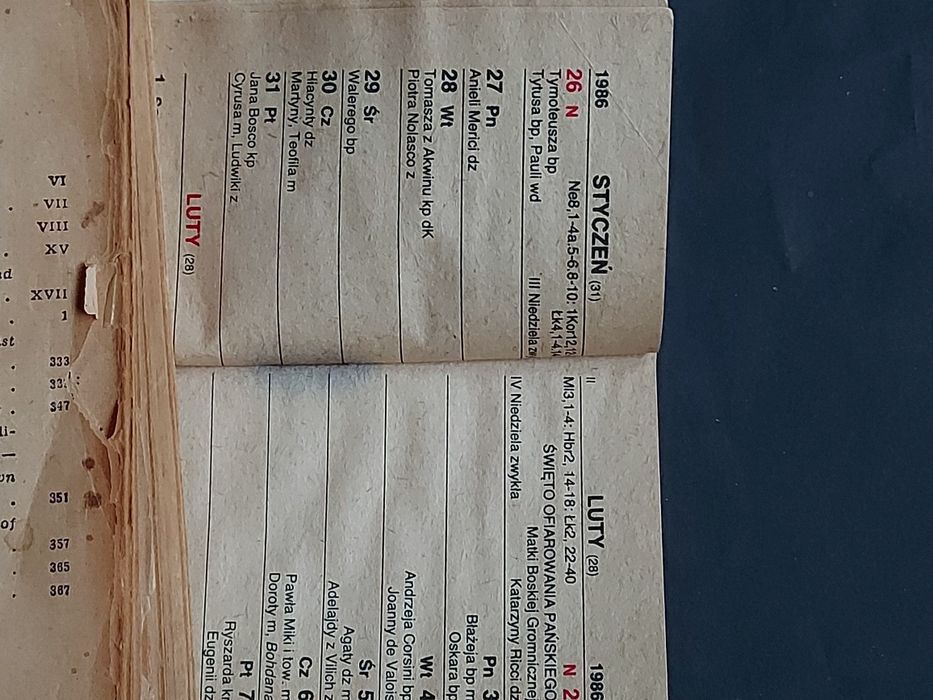 1986 STYCZEŃ (31)
26 N Ne8,1-4a.5-6.8-10: 1Kor12,
Tymoteusza bp Łk4,1-4,
Tytusa bp, Pauli wd III Niedziela
27 Pn
Anieli Merici dz
28 Wt
Tomasza z Akwinu kp dK
Piotra Nolasco z
29 Śr
Walerego bp
30 Cz
Hiacynty dz
Martyny, Teofila m
31 Pt
Jana Bosco kp
Cyrusa m, Ludwiki z
LUTY (28)
1
II LUTY (28) 1986
Ml3,1-4: Hbr2, 14-18: Łk2, 22-40 N 2
ŚWIĘTO OFIAROWANIA PAŃSKIEGO
Matki Boskiej Gromnicznej
IV Niedziela zwykła Katarzyny Ricci dz
Pn 3
Błażeja bp m
Oskara bp
Wt 4
Andrzeja Corsini bp
Joanny de Valois
Śr 5
Agaty dz m
Adelajdy z Vilich z
Cz 6
Pawła Miki i tow. m
Doroty m, Bohdana
Pt 7
Ryszarda kr
Eugenii dz
VI
VII
VIII
XV
XVII
1
st
333
33
347
li-
351
of
357
365
367